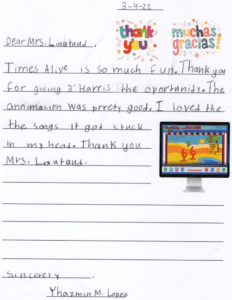 3-4-22
thank you
muchas gracias!
Dear Mrs. Liautaud,
Times Alive is so much fun. Thank you
for giving J' Harris the oportunidy. The
annimation was prrety good. I loved the
the songs it got stuck
in my head. Thank you
Mrs. Liautaud.
Sincerely
Yhazmin M. Lopez